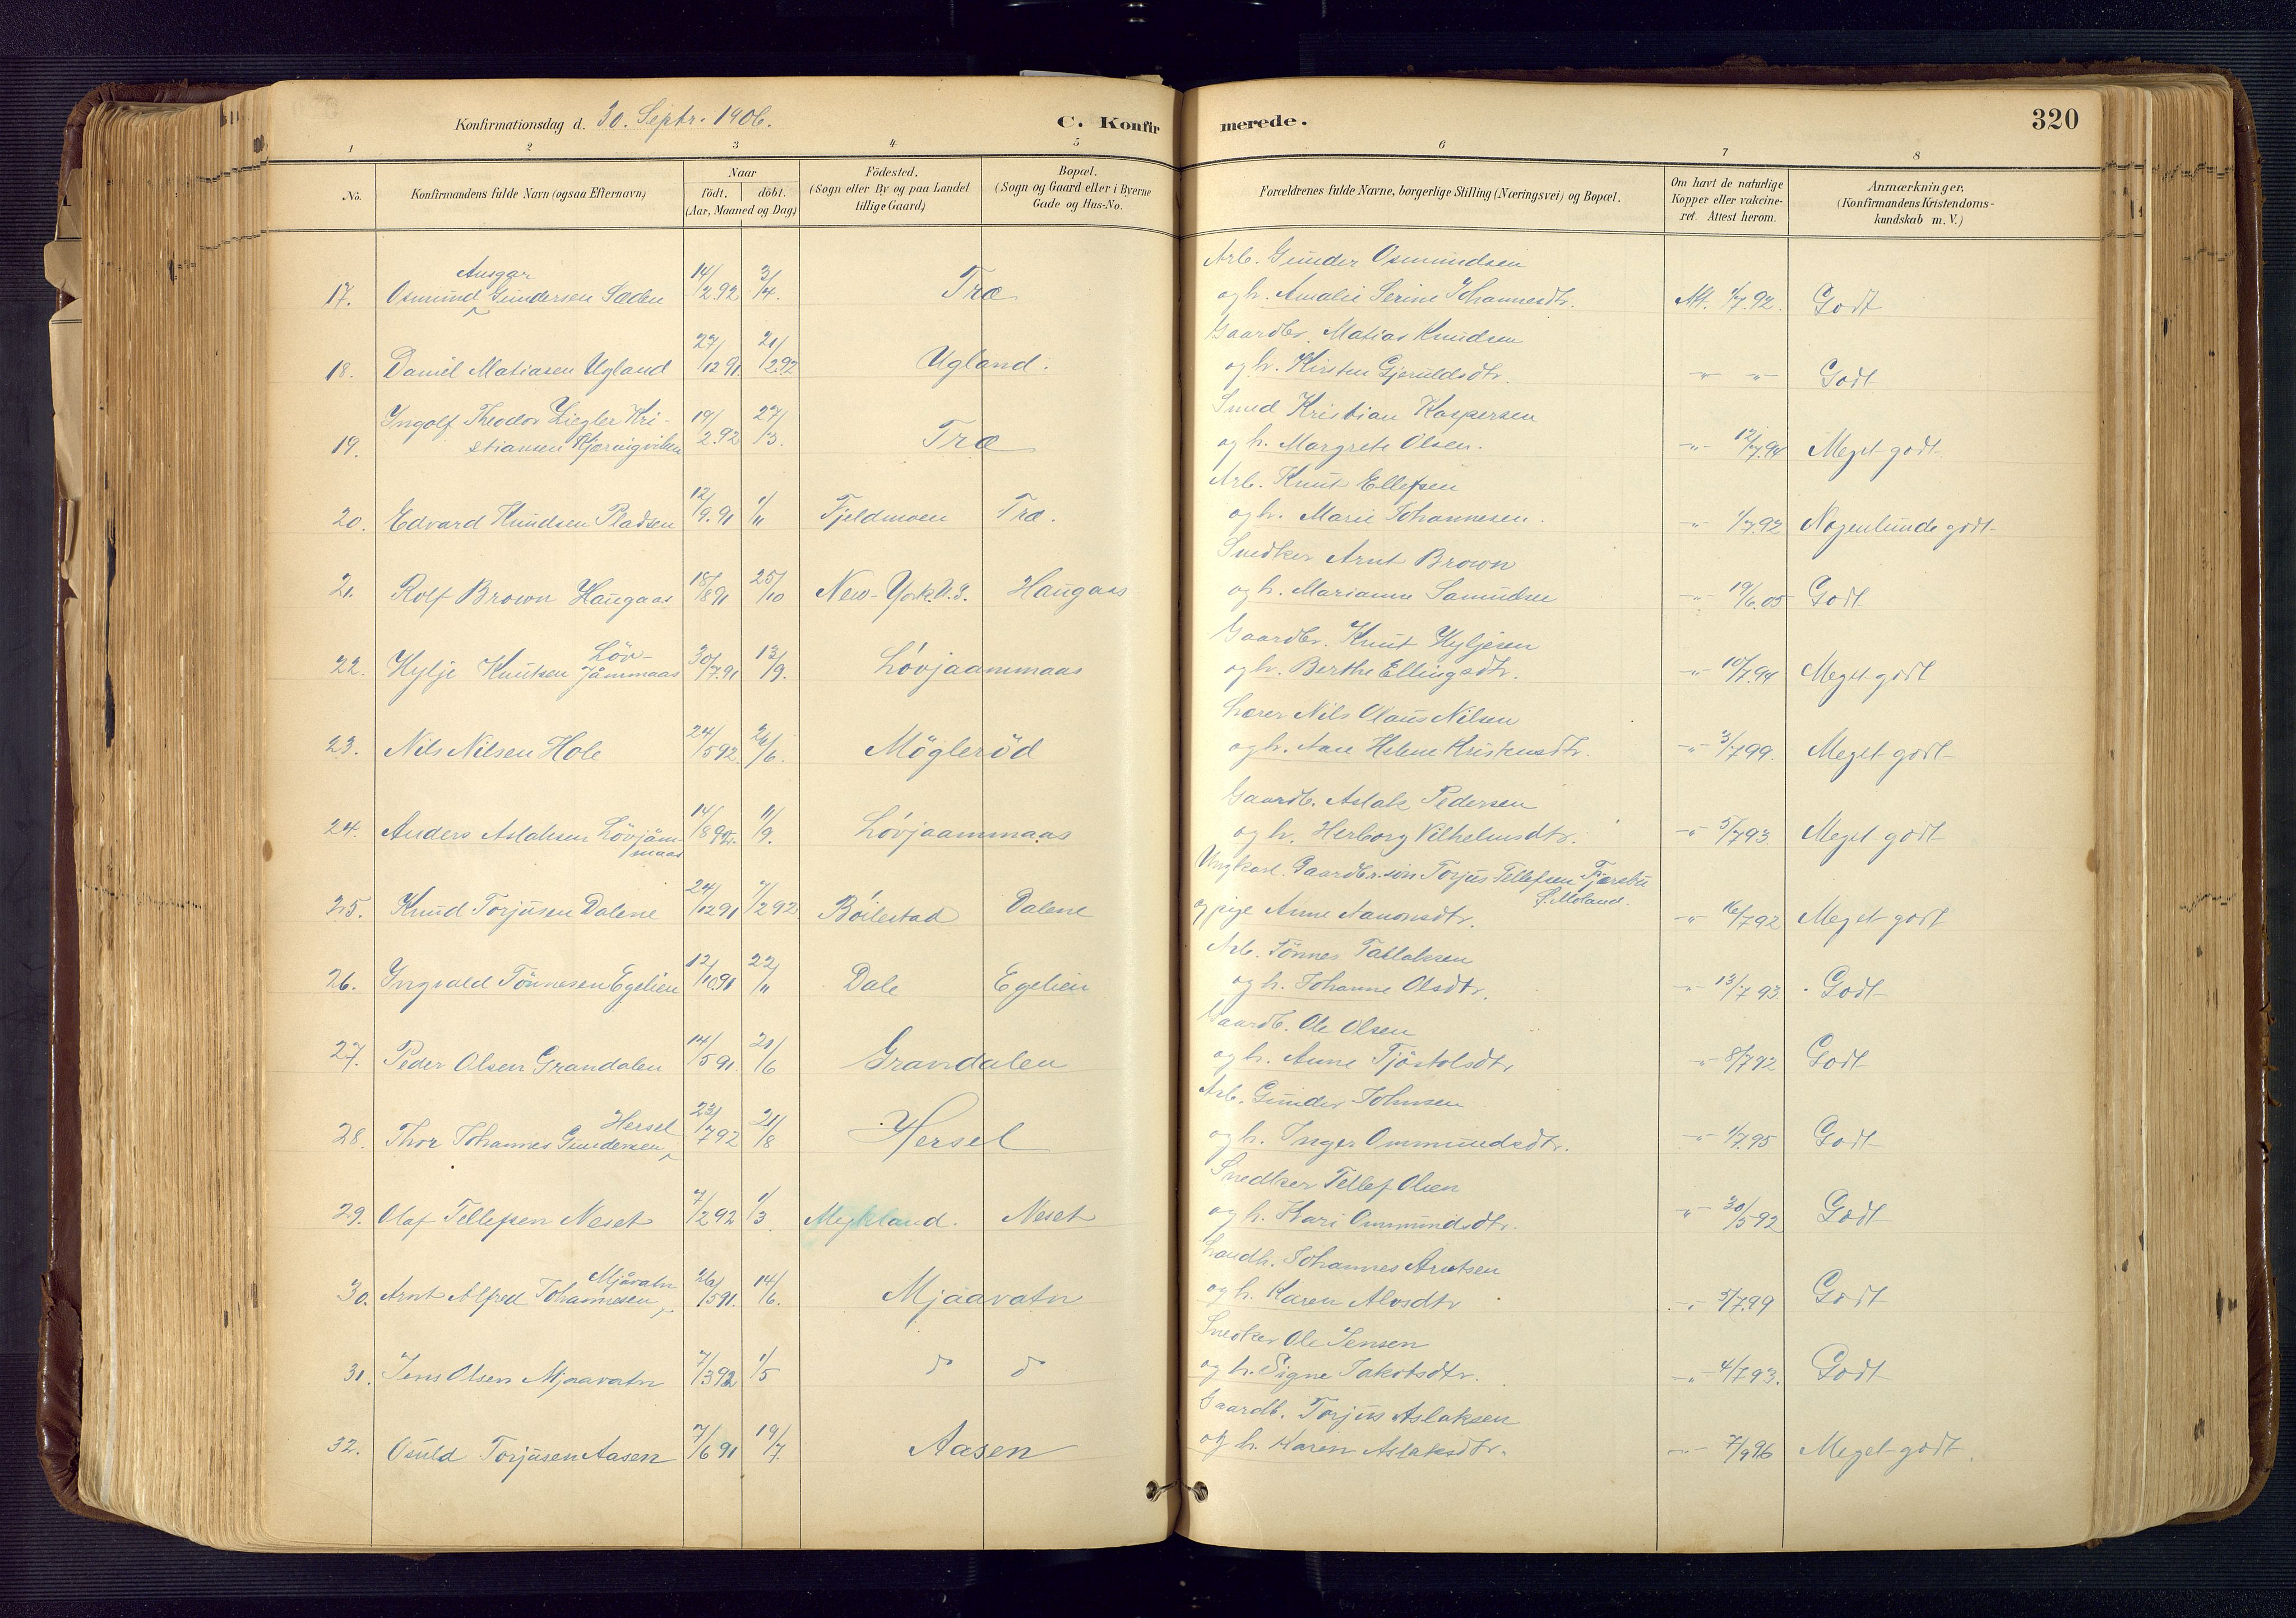 Konfirmationsdag d. 30. Septr. 1906.
C. Konfirmerede.
320
1 2 3 4 5 6 7 8
No.
Konfirmandens fulde Navn (ogsaa Efternavn)
Naar
födt. döbt.
(Aar, Maaned og Dag)
Födested.
(Sogn eller By og paa Landet
tillige Gaard)
Bopæl.
(Sogn og Gaard eller i Byerne
Gade og Hus-No.
Forældrenes fulde Navne, borgerlige Stilling (Næringsvei) og Bopæl.
Om havt de naturlige
Kopper eller vakcine-
ret. Attest herom.
Anmærkninger.
(Konfirmandens Kristendoms-
kundskab m. V.)
Ansgar
Arb. Gunder Osmundsen
17. Osmund Gundersen 14/2 92 3/4. Træ og h. Amalie Serine Johannesdtr. Att. 1/7.92. Godt
Gaardbr. Matias Knudsen
18. Daniel Matiasen Ugland 27/12 91 21/2 92 Ugland. og h. Kirsten Gjeruldsdtr. -"- -"- Godt
Ingolf Theodor Ziegler Kri-
Smed Kristian Kaspersen
19. stiansen Kjærnigviken 19/2.92 27/3. Træ og h. Margrete Olsen. -"- 12/7.94 Meget godt
Arb. Knut Ellefsen
20. Edvard Knudsen Pladsen 12/9.91 1/11 Fjeldmoen Træ. og h. Marie Johannesen. -"- 1/7.92 Nogenlunde godt
Snedker Arnt Brown
21. Rolf Brown Haugaas 18/8 91 25/10 New-York. U.S. Haugaas og h. Marianne Samuelsen -"- 19/6.05 Godt
Löv-
Gaardbr. Knut Hyljesen
22. Hylje Knutsen jåmmaas 30/7.91 13/9. Lövjaammaas og h. Berthe Ellingsdtr. -"- 10/7.94 Meget godt
Lærer Nils Olaus Nilsen
23. Nils Nilsen Hole 24/5 92. 26/6. Mögleröd og h. Ane Helene Kristensdtr. -"- 3/7 99. Meget godt
Gaardb. Aslak Pedersen
24. Anders Aslaksen Lövjåm- 14/8 11/9. Lövjaammaas og h. Herborg Vilhelmsdtr. -"- 5/7 93. Meget godt
maas
Ungkarl. Gaardbr.sön Torjus Tellefsen Fjærebu
S. Moland.
25. Knud Torjusen Dalene 24/12 91 7/2 92 Böilestad Dalene og pige Anne Aanonsdtr. -"- 16/7 92 Meget godt
Arb. Tönnes Tallaksen
26. Ingvald Tönnesen Egelien 12/10.91 22/11 Dale Egelien og h. Johanne Olsdtr. -"- 13/7 93. Godt
Gaardb. Ole Olsen
27. Peder Olsen Grandalen 14/5 91. 21/6 Grandalen og h. Anne Tjöstolsdtr -"- 8/7 92 Godt
Hersel
Arb. Gunder Johnsen
28. Thor Johannes Gundersen 23/7 92 21/8 Hersel og h. Inger Ommundsdtr. -"- 1/7.95 Godt
Snedker Tellef Olsen
29. Olaf Tellefsen Neset 7/2 92 1/3. Mykland. Neset og h. Kari Ommundsdtr. -"- 30/5 92 Godt
Mjåvatn
Landh. Johannes Arntsen
30. Arnt Alfred Johannesen 26/5 91. 14/6. Mjaavatn og h. Karen Alvsdtr -"- 3/7.99 Godt
Snedker Ole Jensen
31. Jens Olsen Mjaavatn 7/3 92 1/5 d d og h. Signe Jakobsdtr. -"- 4/7 93. Godt
Gaardb. Torjus Aslaksen
32. Osuld Torjusen Aasen 7/6 91 19/7. Aasen og h. Karen Aslaksdtr. -"- 7/9 96 Meget godt.